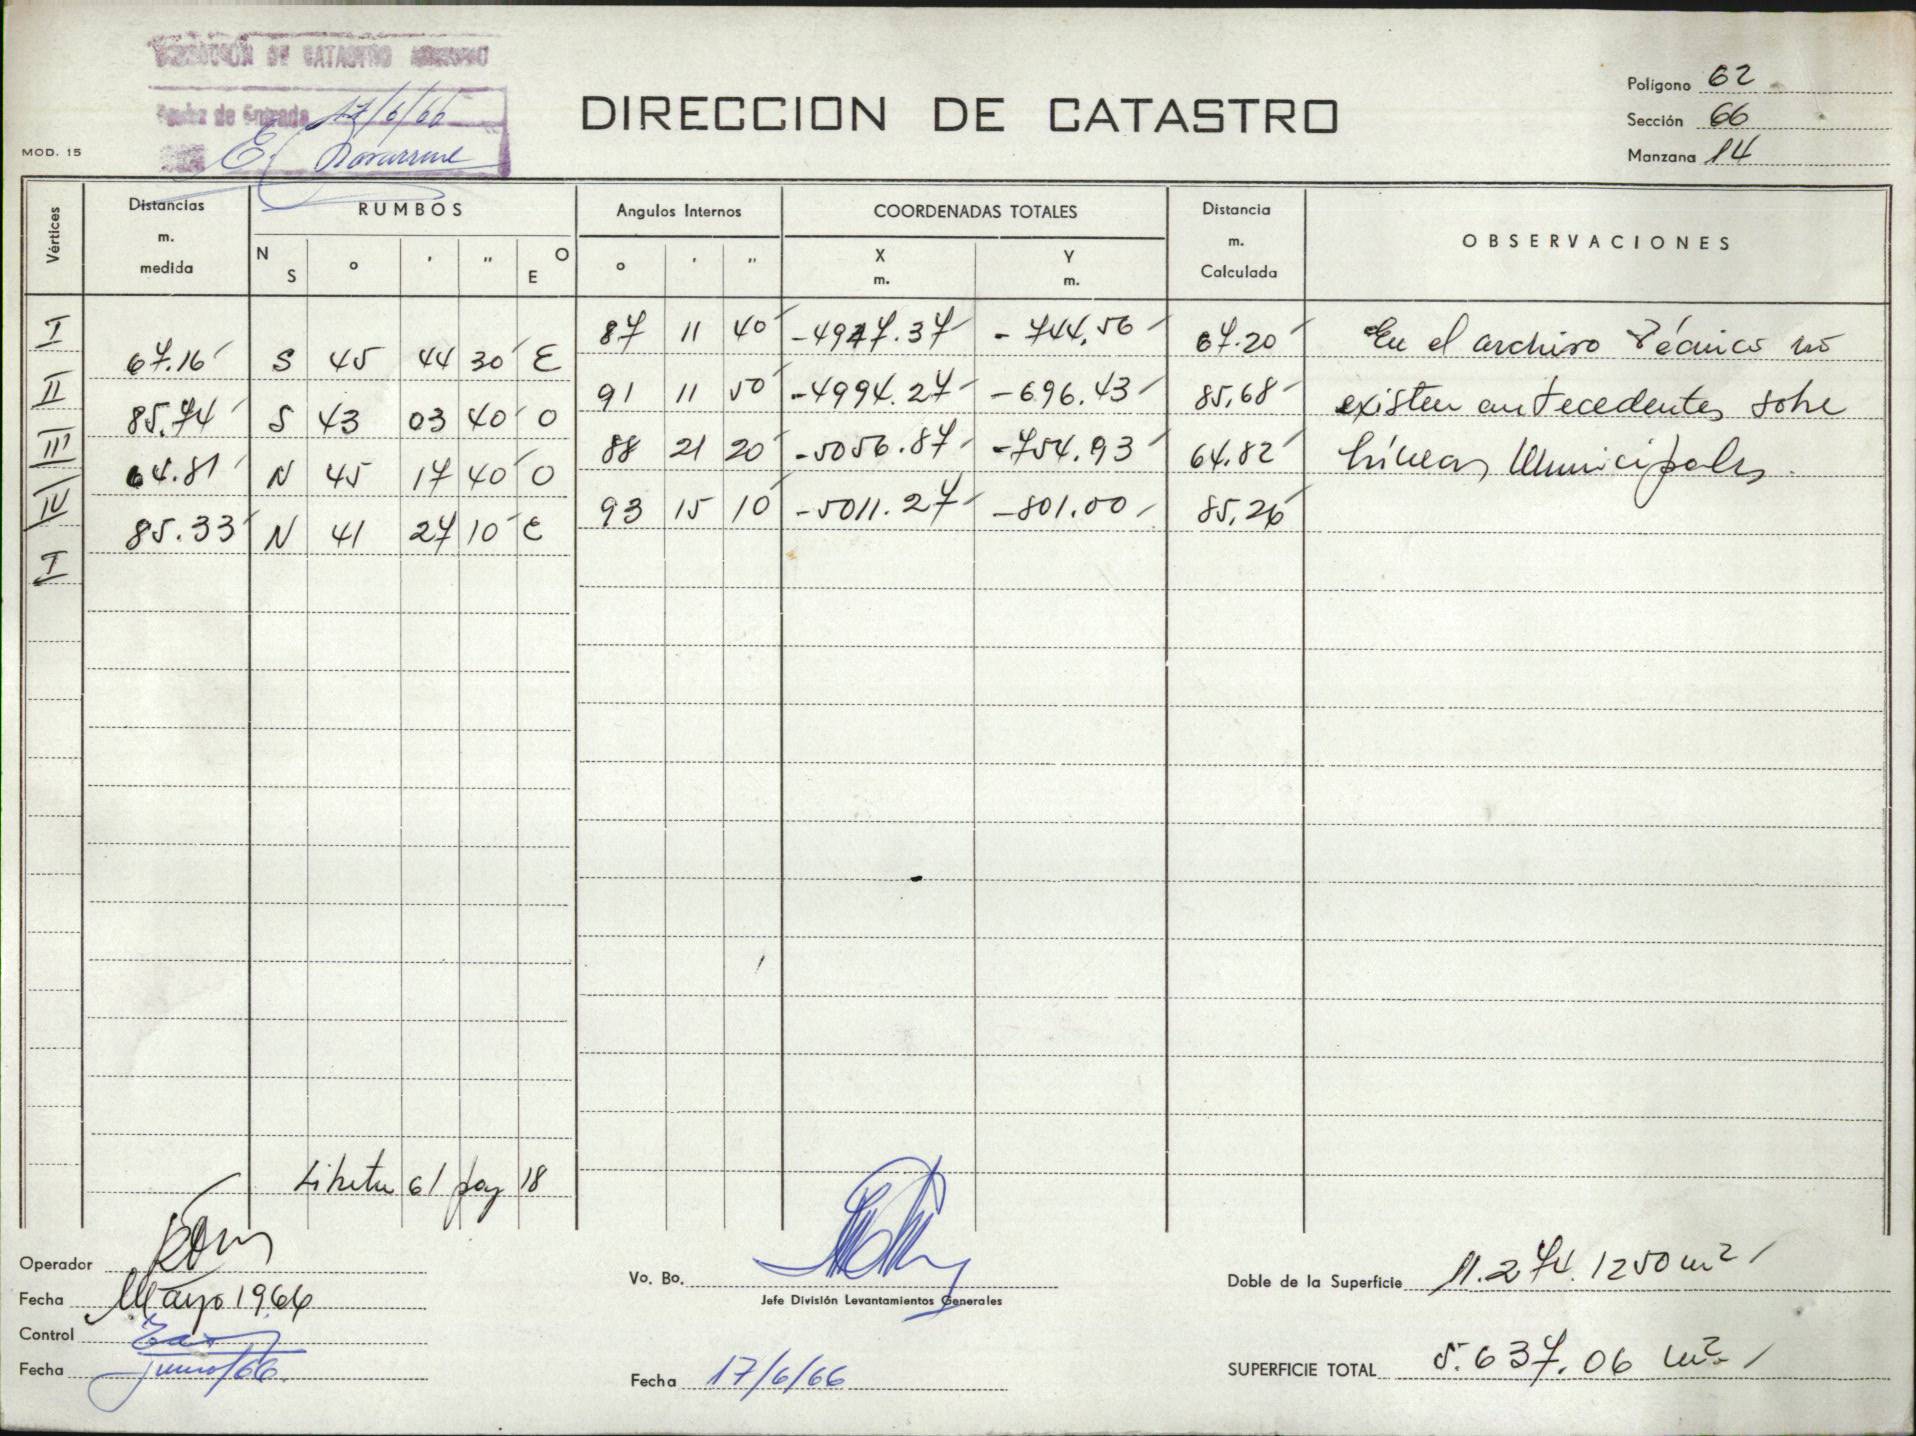 DIRECCION DE CATASTRO
17/6/66
DIRECCION DE CATASTRO
MOD. 15
Polígono 62
Sección 66
Manzana 14
Vértices Distancias m. medida RUMBOS Angulos Internos COORDENADAS TOTALES Distancia m. Calculada OBSERVACIONES
N S o ' " O E o ' " X m. Y m.
I 87 11 40 -4947.37 -744.56 67.20 En el archivo Técnico no
67.16 S 45 44 30 E
II 91 11 50 -4994.27 -696.43 85.68 existen antecedentes sobre
85.74 S 43 03 40 O
III 88 21 20 -5056.87 -754.93 64.82 Líneas Municipales.
64.81 N 45 17 40 O
IV 93 15 10 -5011.27 -801.00 85.26
85.33 N 41 27 10 E
I
Libreta 61 pag 18
Operador
Fecha Mayo 1966
Control
Fecha junio/66
Vo. Bo.
Jefe División Levantamientos Generales
Fecha 17/6/66
Doble de la Superficie 11.274.1250 m2
SUPERFICIE TOTAL 5.637.06 m2